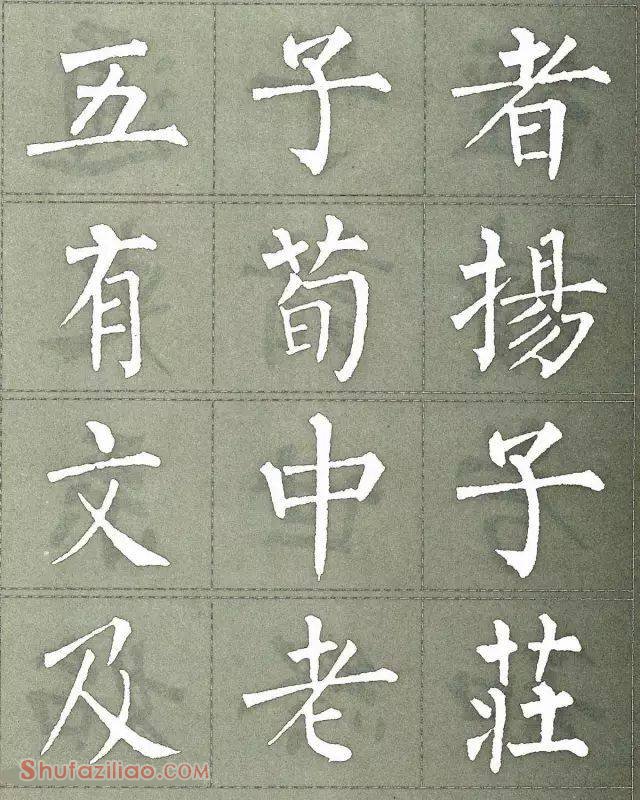 五子者
有荀揚
文中子
及老莊
Shufaziliao.COM